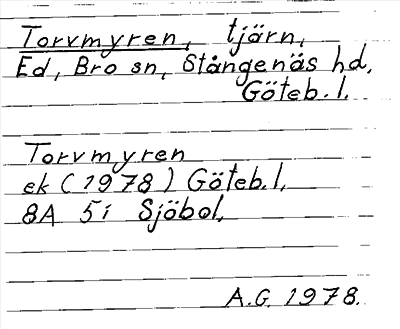 Torvmyren, tjärn,
Ed, Bro sn, Stångenäs hd,
Göteb. l.
Torvmyren
ek (1978) Göteb. l,
8A 5i Sjöbol,
A.G. 1978.